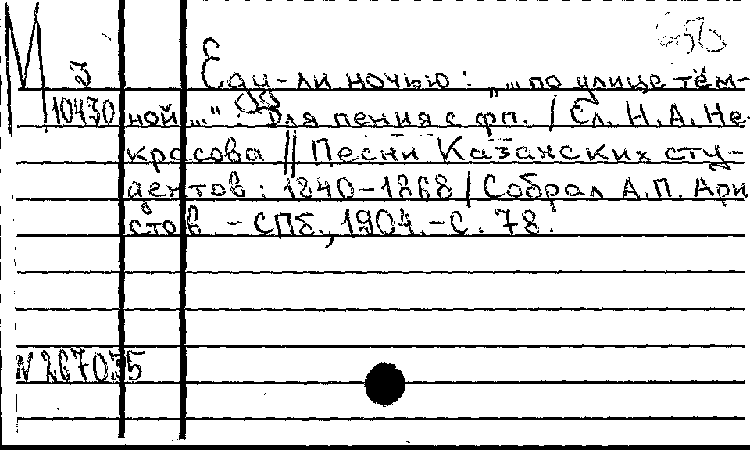 М
З
10430
Еду-ли ночью : „... по улице тём-
ной ..." : Для пения с фп. / Сл. Н.А. Не-
красова || Песни Казанских сту-
дентов : 1840-1868 / Собрал А.П. Ари
стов. - СПб., 1904. - С. 78.
N 267035